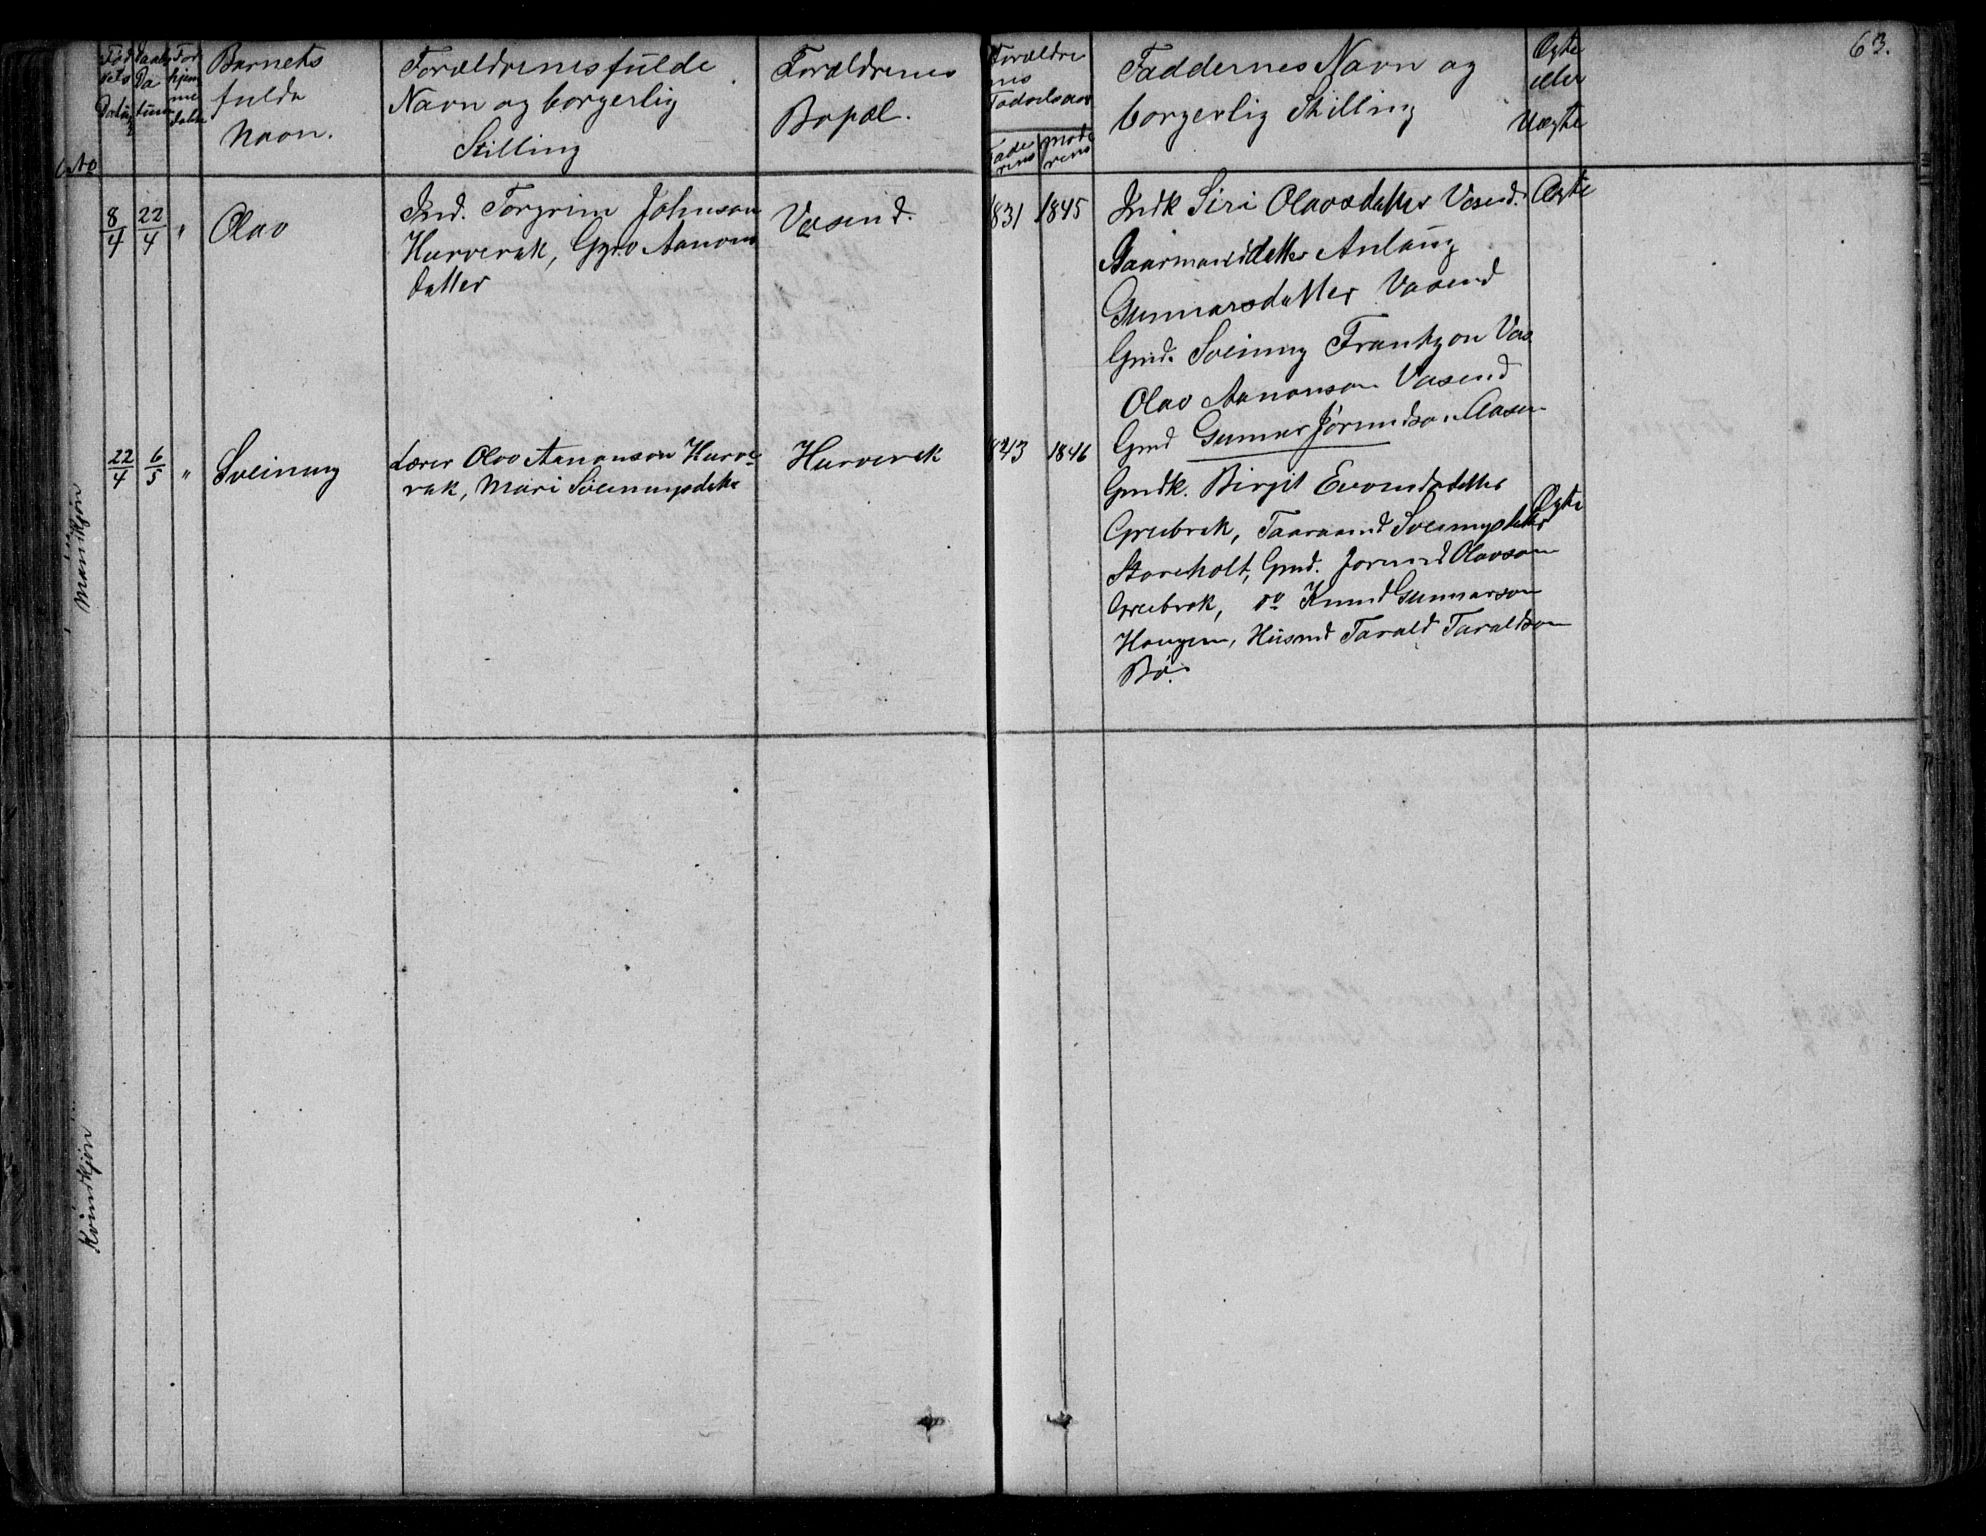 63.
Barnets
fulde
Navn.
Forældrenes fulde
Navn og borgerlig
Stilling
Forældrenes
Bopæl.
Forældre
nes
Fødselsaar
Fade
rens
Mode
rens
Faddernes Navn og
borgerlig Stilling
Ægte
eller
Uægte
Mandkjøn
8/4 22/4 " Olav
Ind. Torgrim Johnson
Hurverak, Gyro Aanons
datter
Vasend.
1831 1845
Indk Siri Olavsdatter Vasend. Ægte
Gaarmandsdatter Anlaug
Gunnarsdatter Vasend
Gmd. Sveinung Frantzon Vas
Olav Aanonson Vasend
Gmd Gunnar Jørundson Aasen
22/4 6/5 " Sveinung
Lærer Olav Aanonson Hurve
rak, Mari Sveinungsdatter
Hurverak
1843 1846
Gmdk. Birgit Evondsdatter
Greibrok, Taaraand Sveinungsdatter Ægte
Storeholt, Gmd. Jorund Olavson
Greibrok, do Knud Gunnarson
Haugen, Husmd Tarald Taraldson
Bø.
Kvindkjøn